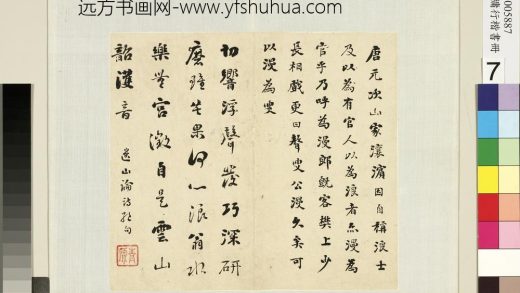 远方书画网-www.yfshuhua.com
005887
行楷書冊
7
唐元次山家瀼濱因自稱浪士
及以為有官人以為浪者亦漫為
官乎乃呼為漫郎既客樊上少
長相戲更曰聱叟公漫久矣可
以漫為叟
切響浮聲發巧深研
摩雖苦果何心浪翁水
樂無宮徵自是雲山
韶濩音
遺山論詩絕句